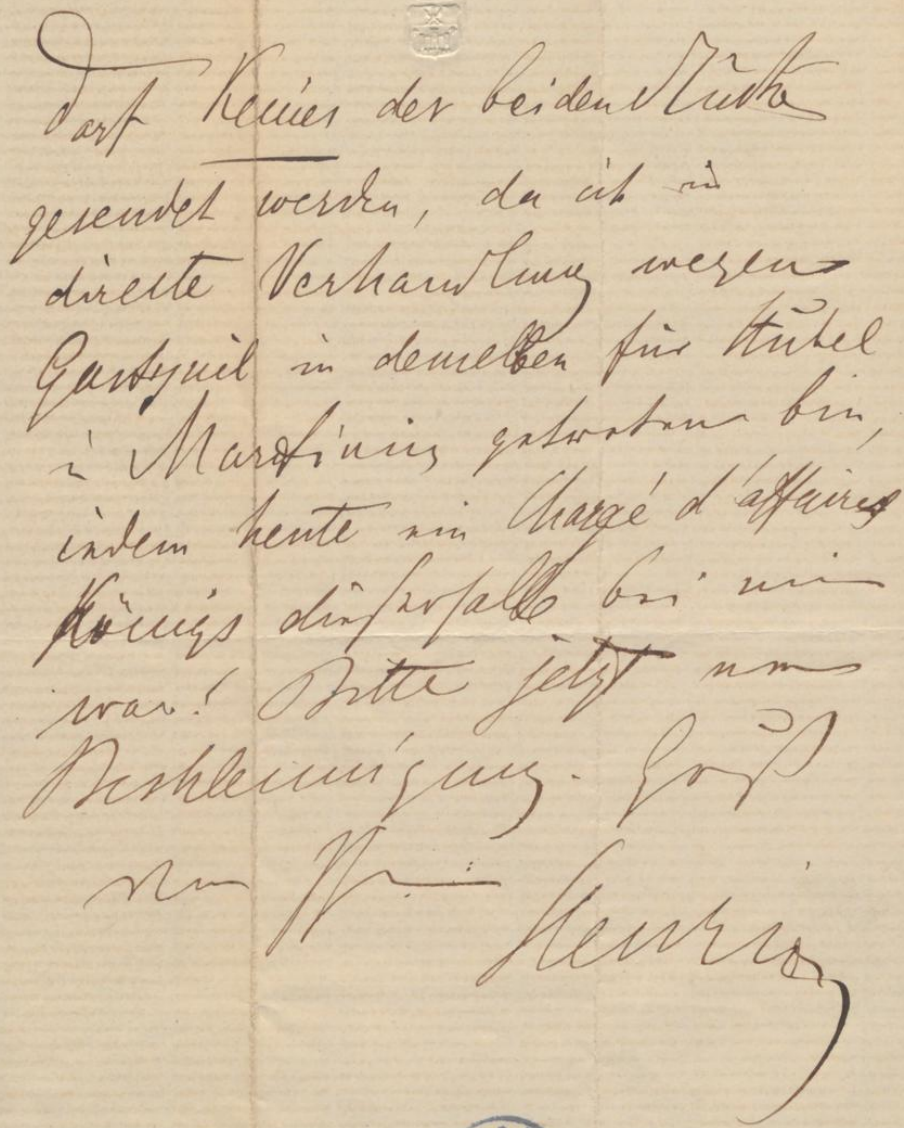 darf Keines der beiden Stücke
gesendet werden, da ich in
directe Verhandlung wegen
Gastspiel in demselben für
in getreten bin,
indem heute ein Chargé d'affaires
Königs dießerhalb bei mir
war! Bitte jetzt um
Beschleunigung. Gruß
von